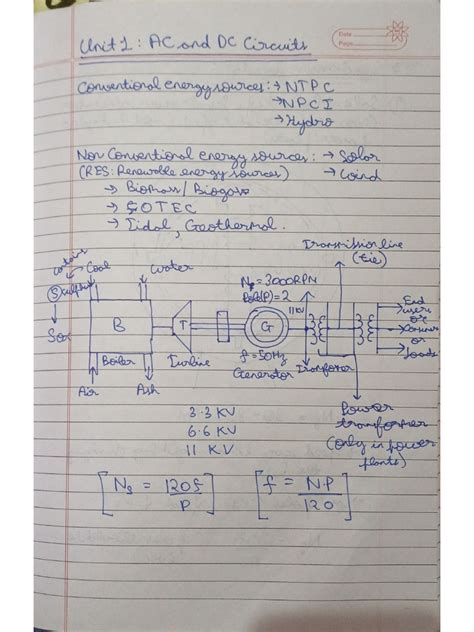 Date
Page
Unit 1 : AC and DC Circuits
Conventional energy sources : → NTPC
→ NPCI
→ Hydro
Non Conventional energy sources : → Solar
(RES: Renewable energy sources) → Wind
→ Biomass / Biogass
→ SOTEC
→ Tidal, Geothermal.
Transmission line
(tie)
contains
Coal
Water
Ns = 3000RPM
Pole(P) = 2
11KV
Sulphur
Sox
B
T
G
Boiler
Turbine
f = 50Hz
Generator
Transformer
End
users
or
Consumers
or
loads
Air
Ash
Power
transformer
(only in power
plants)
3.3 KV
6.6 KV
11 KV
[Ns = 120f/P] [f = N.P/120]